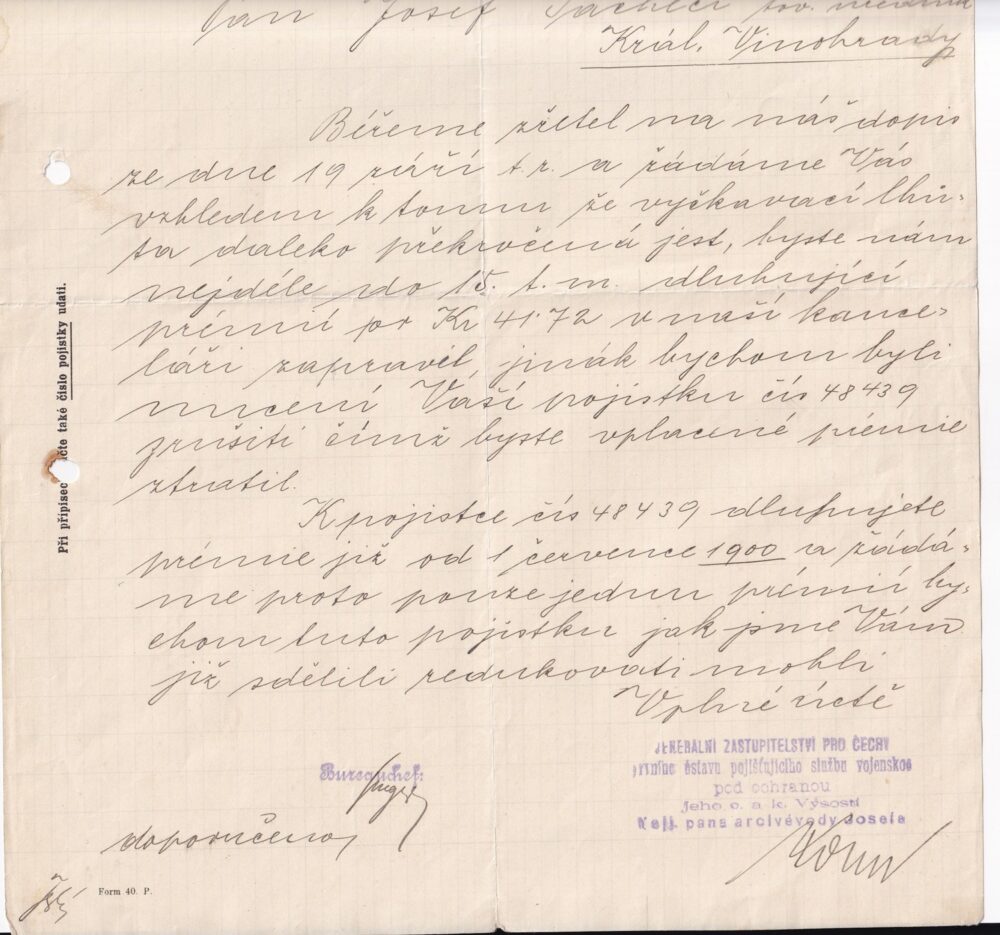 Pan Josef
Král. Vinohrady
Béřeme zřetel na náš dopis
ze dne 19 září t.r. a žádáme Vás
vzhledem k tomu že vyčkavací lhů-
ta daleko překročená jest, byste nám
nejdéle do 15. t. m. dluhující
prémii pr Kr 41·72 v naší kance-
láři zapravěl, jinák bychom byli
nuceni Vaší pojistku čís 48439
zrušiti čímž byste vplacené prémie
ztratil.
K pojistce čís 48439 dluhujete
prémie již od 1 července 1900 a žádá-
me proto pouze jednu prémii by-
chom tuto pojistku jak jsme Vám
již sdělili redukovati mohli
V plné úctě
JENERALNÍ ZASTUPITELSTVÍ PRO ČECHY
prvního ústavu pojišťujícího službu vojenskou
pod ochranou
Jeho c. a k. Výsosti
Nejj. pana arcivévody Josefa
Bureauchef:
doporučeno
Form 40. P.
Při připisech račte také číslo pojistky udati.